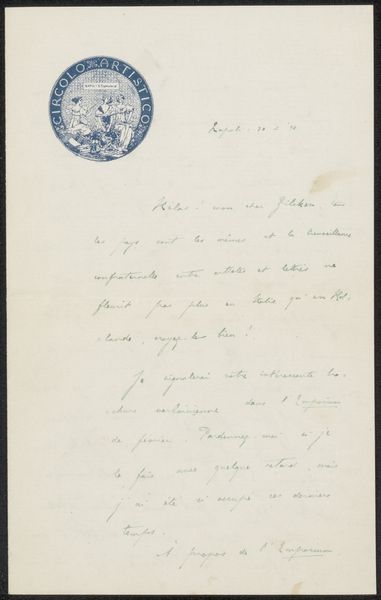 CIRCOLO ARTISTICO
Napoli
Helas! mon cher Zilcken, tous
les pays sont les mêmes et la bienveillance
confraternelle entre artistes et lettrés ne
fleurit pas plus en Italie qu'en Hol-
lande, croyez-le bien!
Je signalerai votre intéressante bro-
chure verlainienne dans l'Emporium
de fevrier. Pardonnez-moi si je
le fais avec quelque retard, mais
j'ai été si occupé ces derniers
temps.
À propos de l'Emporium,